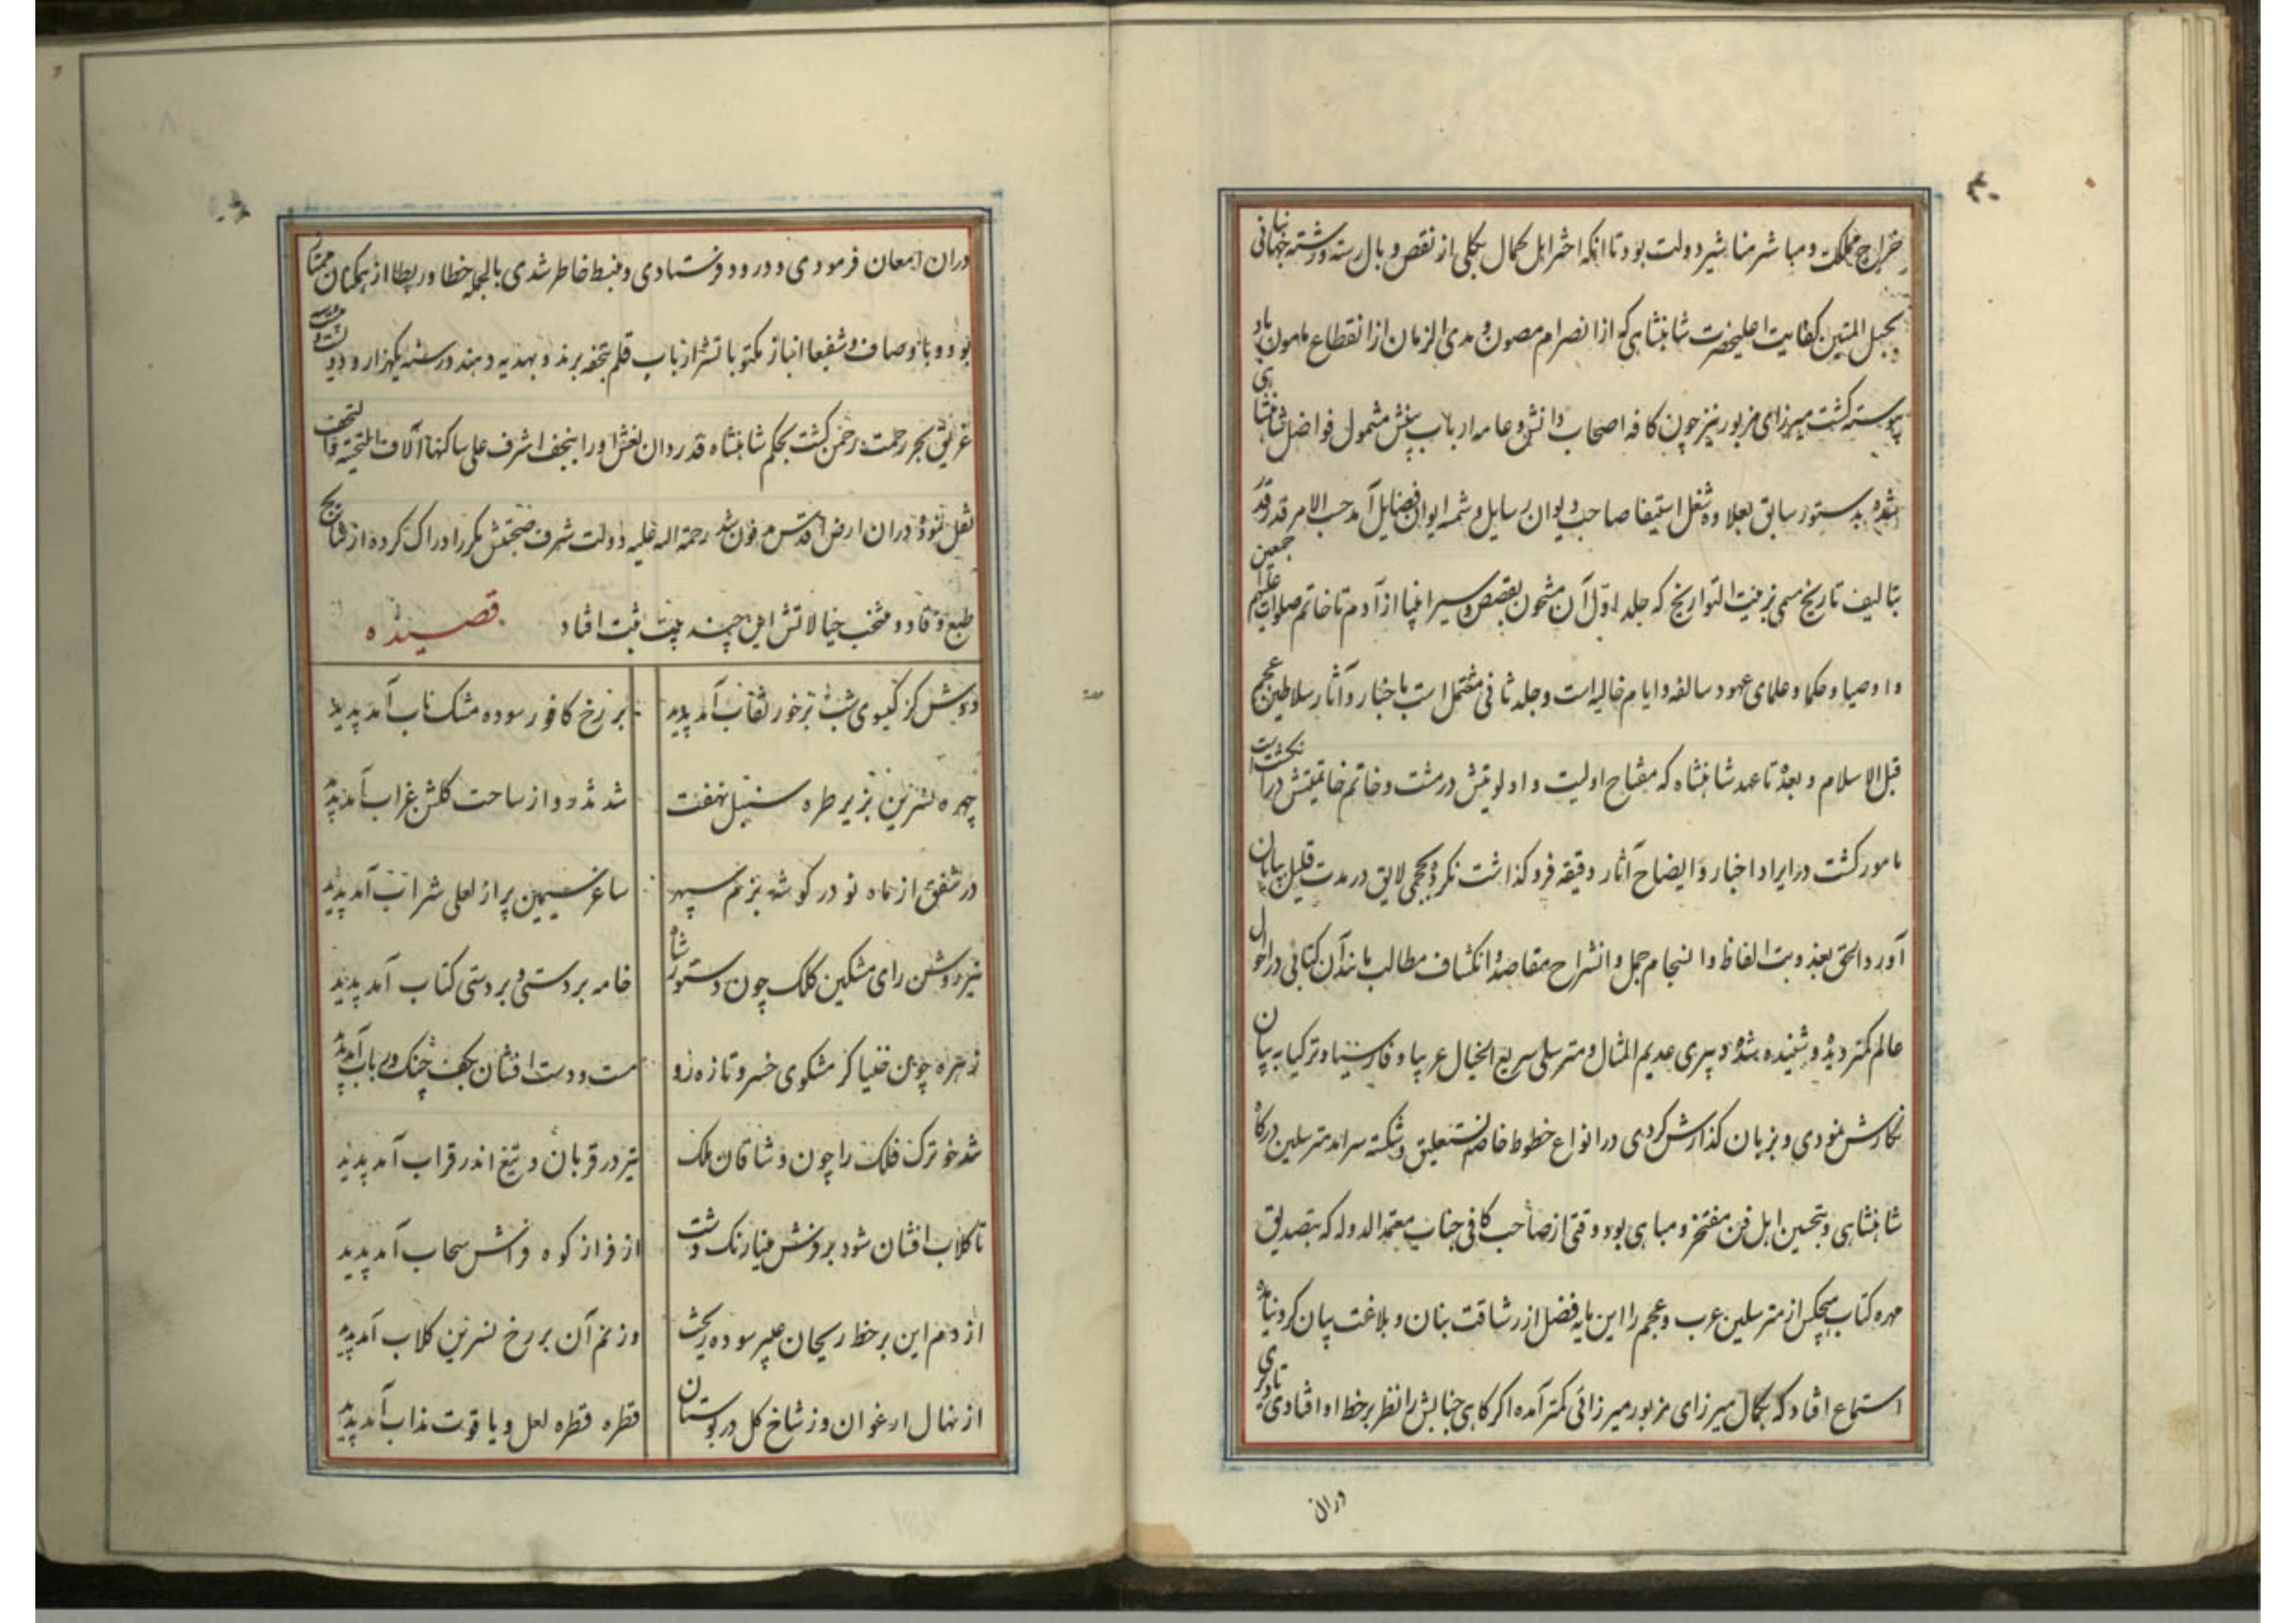 خراج مملکت و مباشر مناشیر دولت بود تا آنکه اختر اهل کمال بکلی از نقص و بال رسته و رشته جهانبانی
بحبل المتین کفایت اعلیحضرت شاهنشاهی که از انصرام مصون و مدی الزمان از انقطاع مامون باد
پیوسته کشت میرزای مزبور نیز چون کافه اصحاب دانش و عامه ارباب بینش مشمول فواضل شاهنشاهی
شده بدستور سابق بعلاوه شغل استیفا صاحب دیوان رسایل و شمسه ایوان فضایل آمد حسب الامر قدر قدر
بتالیف تاریخ مسمی بزینت التواریخ که جلد اول آن مشحون بقصص و سیر انبیا از آدم تا خاتم صلوات الله علیهم اجمعین
و اوصیا و حکما و علمای عهود سالفه و ایام خالیه است و جلد ثانی مشتمل است باخبار و آثار سلاطین عجم
قبل الاسلام و بعده تا عهد شاهنشاه که مفتاح اولیت و اولویتش در مشت و خاتم خاتمیتش در انکشت است
مامور کشت در ایراد اخبار و ایضاح آثار دقیقه فروکذاشت نکرد و بحجمی لایق در مدت قلیل بپایان
آورد الحق بعذوبت الفاظ و انسجام جمل و انشراح مقاصد و انکشاف مطالب مانند آن کتابی در احوال
عالم کمتر دیده و شنیده شده دبیری عدیم المثال و مترسلی سریع الخیال عربیا و فارسیا و ترکیا به بنان
نکارش نمودی و بزبان کذارش کردی در انواع خطوط خاصه نستعلیق و شکسته سرآمد مترسلین درکاه
شاهنشاهی و بتحسین اهل فن مفتخر و مباهی بود وقتی از صاحب کافی جناب معتمد الدوله که بتصدیق
مهره کتاب هیچکس از مترسلین عرب و عجم را این پایه فضل از رشاقت بنان و بلاغت بیان کرد نیامده
استماع افتاد که بکمال میرزای مزبور میرزائی کمتر آمده اکر کاهی جنابش را نظر بر خط او افتادی تا دیری
دران
دران امعان فرمودی و درود فرستادی و منبسط خاطر شدی بالجمله خطا و ربطا از همکنان ممتاز
بود و با وصاف و شفیعا انباز مکتوباتش ارباب قلم بتحفه برند و بهدیه دهند در سنه یکهزار و دویست و
غریق بحر رحمت رحمن کشت بحکم شاهنشاه قدردان نعش او را بنجف اشرف علی ساکنها آلاف التحیة والتحف
نقل نمودند و در ان ارض اقدس مدفون شد رحمة الله علیه دولت شرف صحبتش مکرر ادراک کرده از نتایج
طبع وقاد و منتخب خیالاتش این چند بیت ثبت افتاد قصیده
دوش کز کیسوی شب بر خور نقاب آمد پدید بر رخ کافور سوده مشک ناب آمد پدید
چهره نسرین بزیر طره سنبل نهفت شد تذرو و از ساحت کلشن غراب آمد پدید
در شفق از ماه نو در کوشه بزم سپهر ساغر سیمین پر از لعلی شراب آمد پدید
تیر روشن رای مشکین کلک چون دستور شاه خامه بر دستی و بر دستی کتاب آمد پدید
زهره چون خنیاکر مشکوی خسرو تازه رو مست و دست افشان بکف چنک و رباب آمد پدید
شد خو ترک فلک را چون وشاقان ملک تیر در قربان و تیغ اندر قراب آمد پدید
تا کلاب افشان شود بر فرش مینارنک دشت از فراز کوه فراش سحاب آمد پدید
از دم این بر خط ریحان عبیر سوده ریخت وز نم آن بر رخ نسرین کلاب آمد پدید
از نهال ارغوان وز شاخ کل در بوستان قطره قطره لعل و یاقوت مذاب آمد پدید